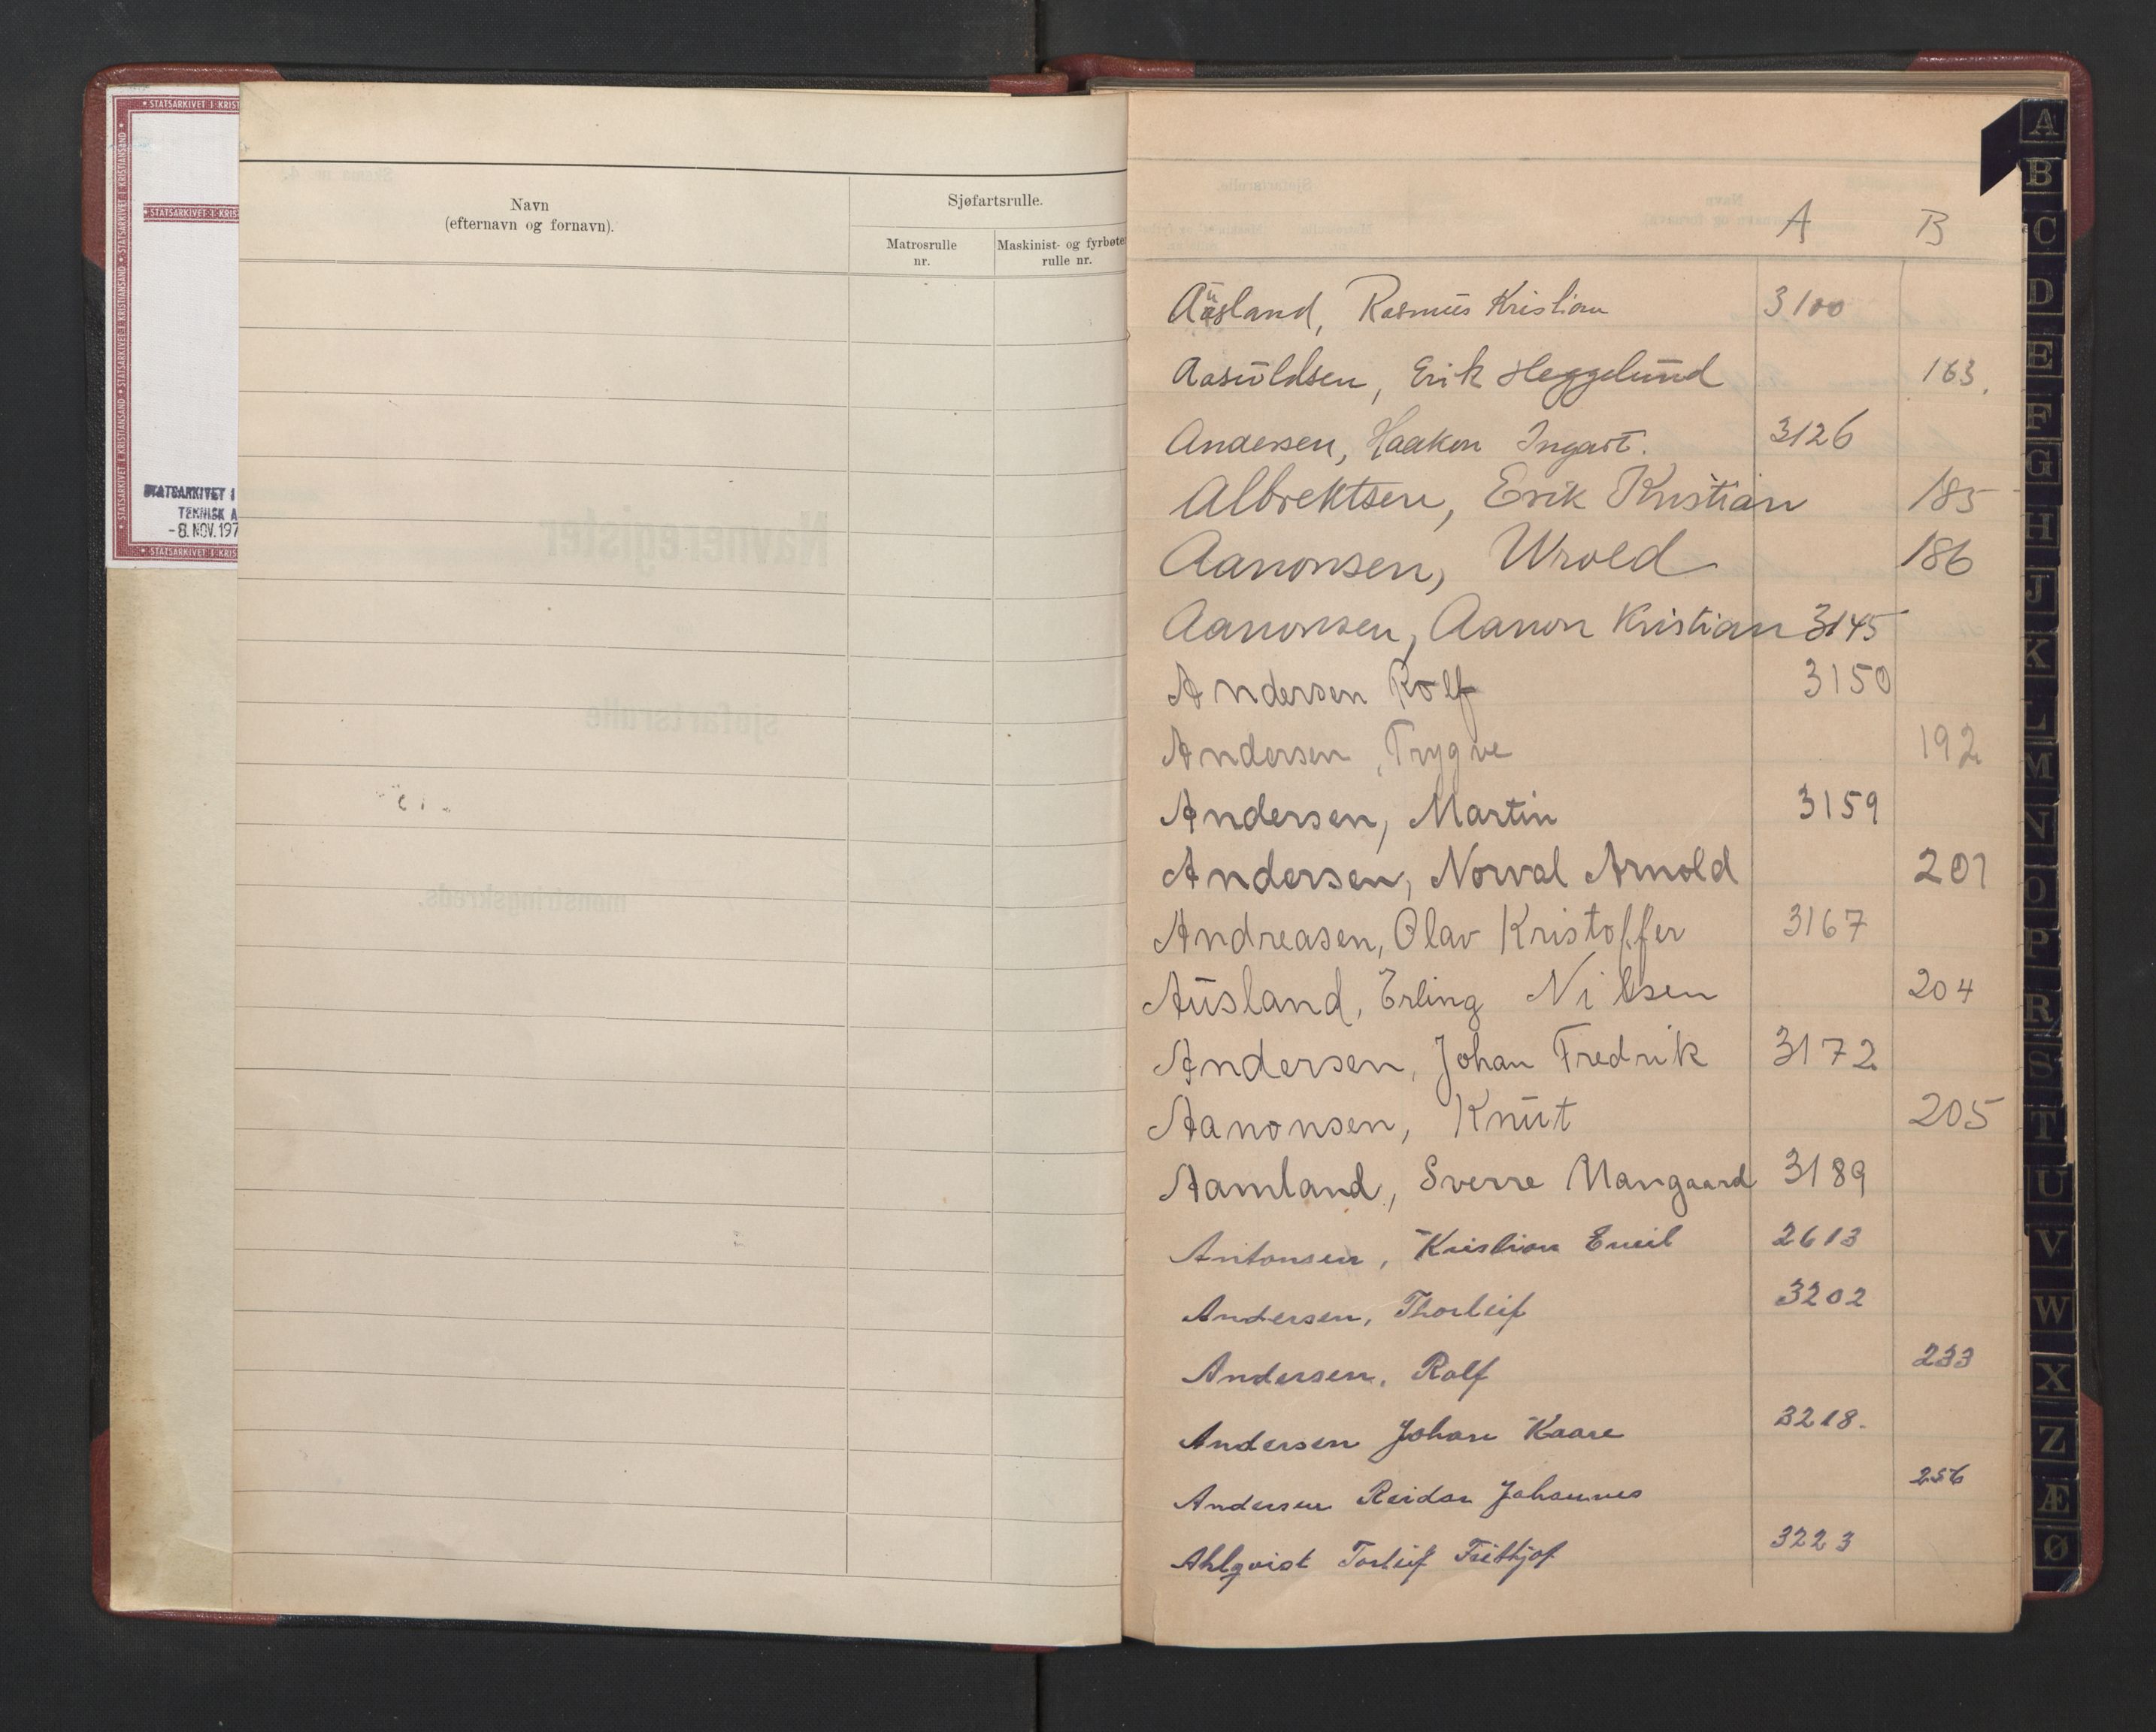 STATSARKIVET I KRISTIANSAND
STATSARKIVET I
TEKNISK A
-8. NOV. 197
Navn
(efternavn og fornavn).
Sjøfartsrulle.
Matrosrulle
nr.
Maskinist- og fyrbøter
rulle nr.
Navneregister
sjøfartsrulle
mønstringskreds.
A B
Ausland, Rasmus Kristian 3100
Aasuldsen, Erik Heggelund 163.
Andersen, Haakon 3126
Albrektsen, Erik Kristian 185
Aanonsen, Wrold 186
Aanonsen, Aanon Kristian 3145
Andersen Rolf 3150
Andersen, Trygve 192
Andersen, Martin 3159
Andersen, Norval Arnold 201
Andreasen, Olav Kristoffer 3167
Ausland, Erling Nilsen 204
Andersen, Johan Fredrik 3172
Aanonsen, Knut 205
Aamland, Sverre Mangaard 3189
Antonsen, Kristian Emil 2613
Andersen, Thorleif 3202
Andersen, Rolf 233
Andersen Johan Kaare 3218.
Andersen Reidar Johannes 256
Ahlqvist Torleif Frithjof 3223
A
B
C
D
E
F
G
H
J
K
L
M
N
O
P
R
S
T
U
V
W
X
Z
Æ
Ø